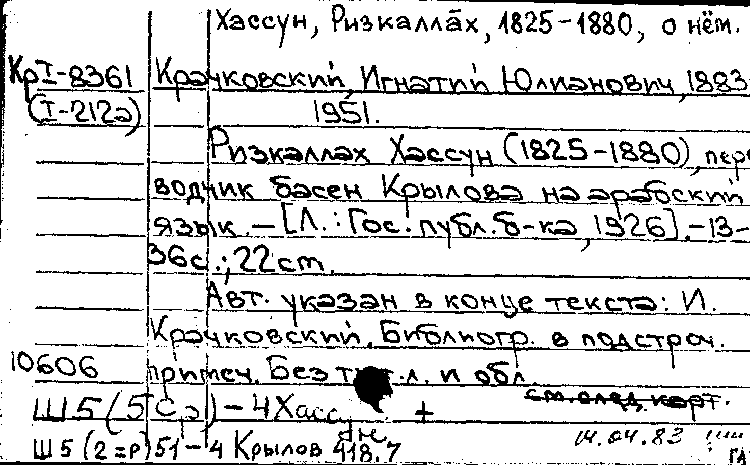 Хассун, Ризкаллах, 1825-1880, о нём.
КрI-8361 Крачковский, Игнатий Юлианович, 1883
(I-212а) 1951.
Ризкаллах Хассун (1825-1880), пере
водчик басен Крылова на арабский
язык. — [Л.: Гос. публ. б-ка, 1926]. -13-
36с.; 22 cm.
Авт. указан в конце текста: И.
Крачковский. Библиогр. в подстроч.
10606 примеч. Без тит. л. и обл.
см. след. карт.
Ш5(5Ср)-4Хасс +
Ш5(2=Р)51-4 Крылов 418.7 14.04.83
ГА